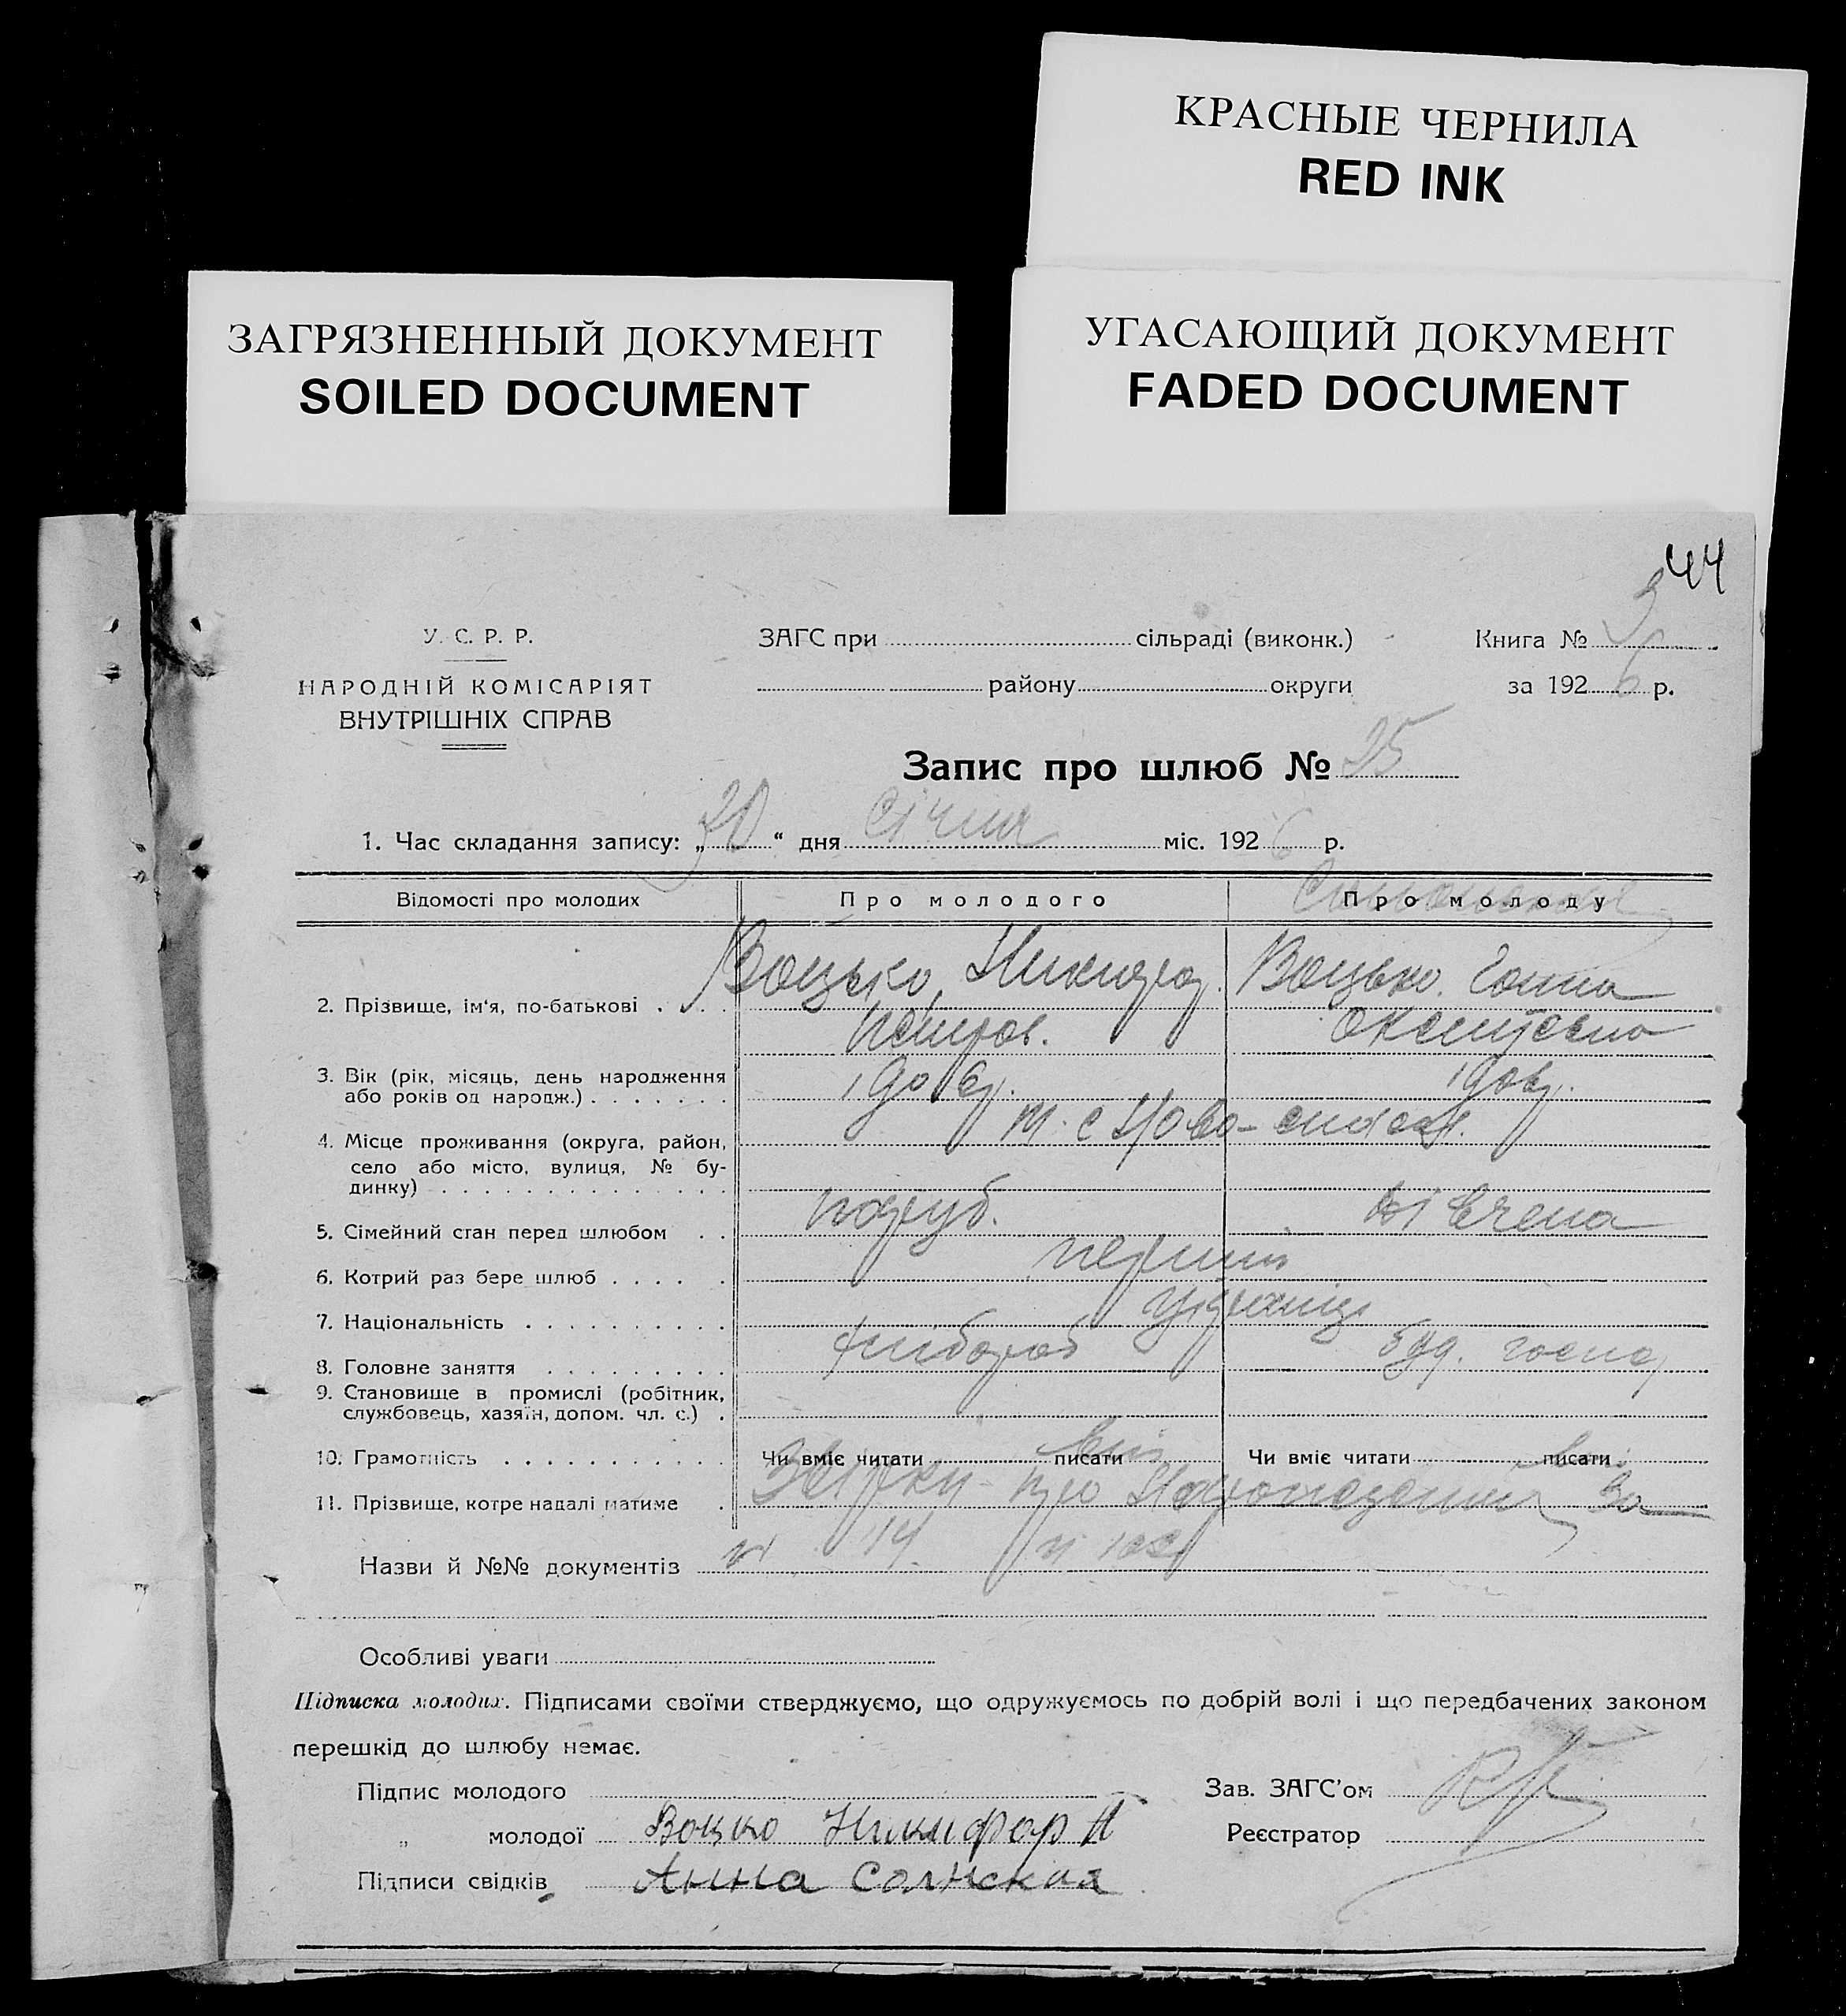 КРАСНЫЕ ЧЕРНИЛА
RED INK
ЗАГРЯЗНЕННЫЙ ДОКУМЕНТ
SOILED DOCUMENT
УГАСАЮЩИЙ ДОКУМЕНТ
FADED DOCUMENT
44
У. С. Р. Р.
НАРОДНІЙ КОМІСАРІЯТ
ВНУТРІШНІХ СПРАВ
ЗАГС при сільраді (виконк.)
району округи
Книга № 3
за 1926 р.
Запис про шлюб № 25
1. Час складання запису: „30“ дня Січня міс. 1926 р.
Відомості про молодих Про молодого Про молоду
2. Прізвище, ім'я, по-батькові . . . . Воцько, Никифор. Воцько. Ганна
Петров.
3. Вік (рік, місяць, день народження
або років од народж.) . . . . . . . 190 р.
4. Місце проживання (округа, район,
село або місто, вулиця, № бу-
динку) . . . . . . . . . . . . . .
5. Сімейний стан перед шлюбом . . паруб. дівчина
6. Котрий раз бере шлюб . . . . . перший
7. Національність . . . . . . . . . . Українці
8. Головне заняття . . . . . . . . . хлібороб госпо
9. Становище в промислі (робітник,
службовець, хазяїн, допом. чл. с.) .
10. Грамотність . . . . . . . . . . . Чи вміє читати писати Чи вміє читати писати
11. Прізвище, котре надалі матиме . про За
Назви й №№ документів № 14
Особливі уваги
Підписка молодих. Підписами своїми стверджуємо, що одружуємось по добрій волі і що передбачених законом
перешкід до шлюбу немає.
Підпис молодого
Зав. ЗАГС'ом
„ молодої Воцко Никифор П
Реєстратор
Підписи свідків Анна Солнская